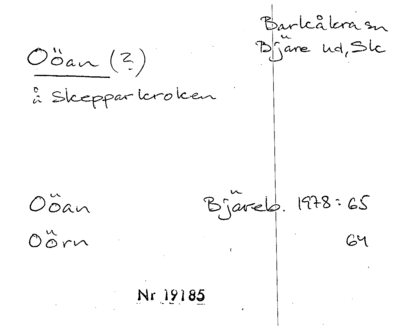 Barkåkra sn
Oöan (?) Bjäre hd, Sk
å Skepparkroken
Oöan Bjäreb. 1978: 65
Oörn 64
Nr 19185